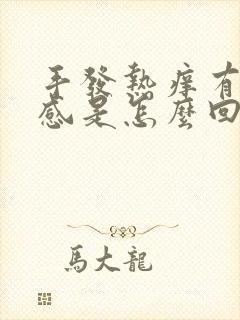 手發熱痒有
感是怎麼回
馬大龍